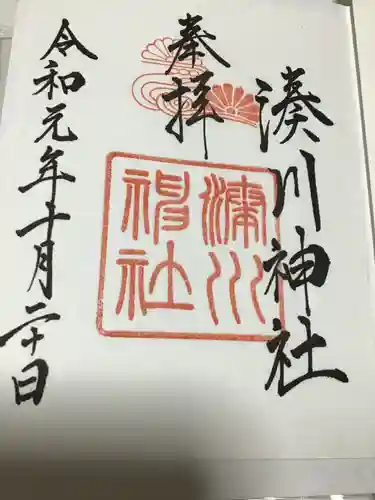 奉拝
湊川神社
湊川神社
令和元年十一月二十日